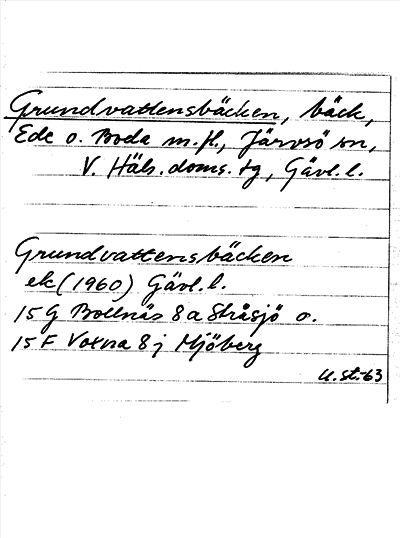 Grundvattensbäcken, bäck,
Ede o. Boda m.fl., Järvsö sn,
V. Häls. doms. tg, Gävl. l.
Grundvattensbäcken
ek (1960) Gävl. l.
15 G Bollnäs 8 a Stråsjö o.
15 F Voxna 8 j Mjöberg
U. st. -63